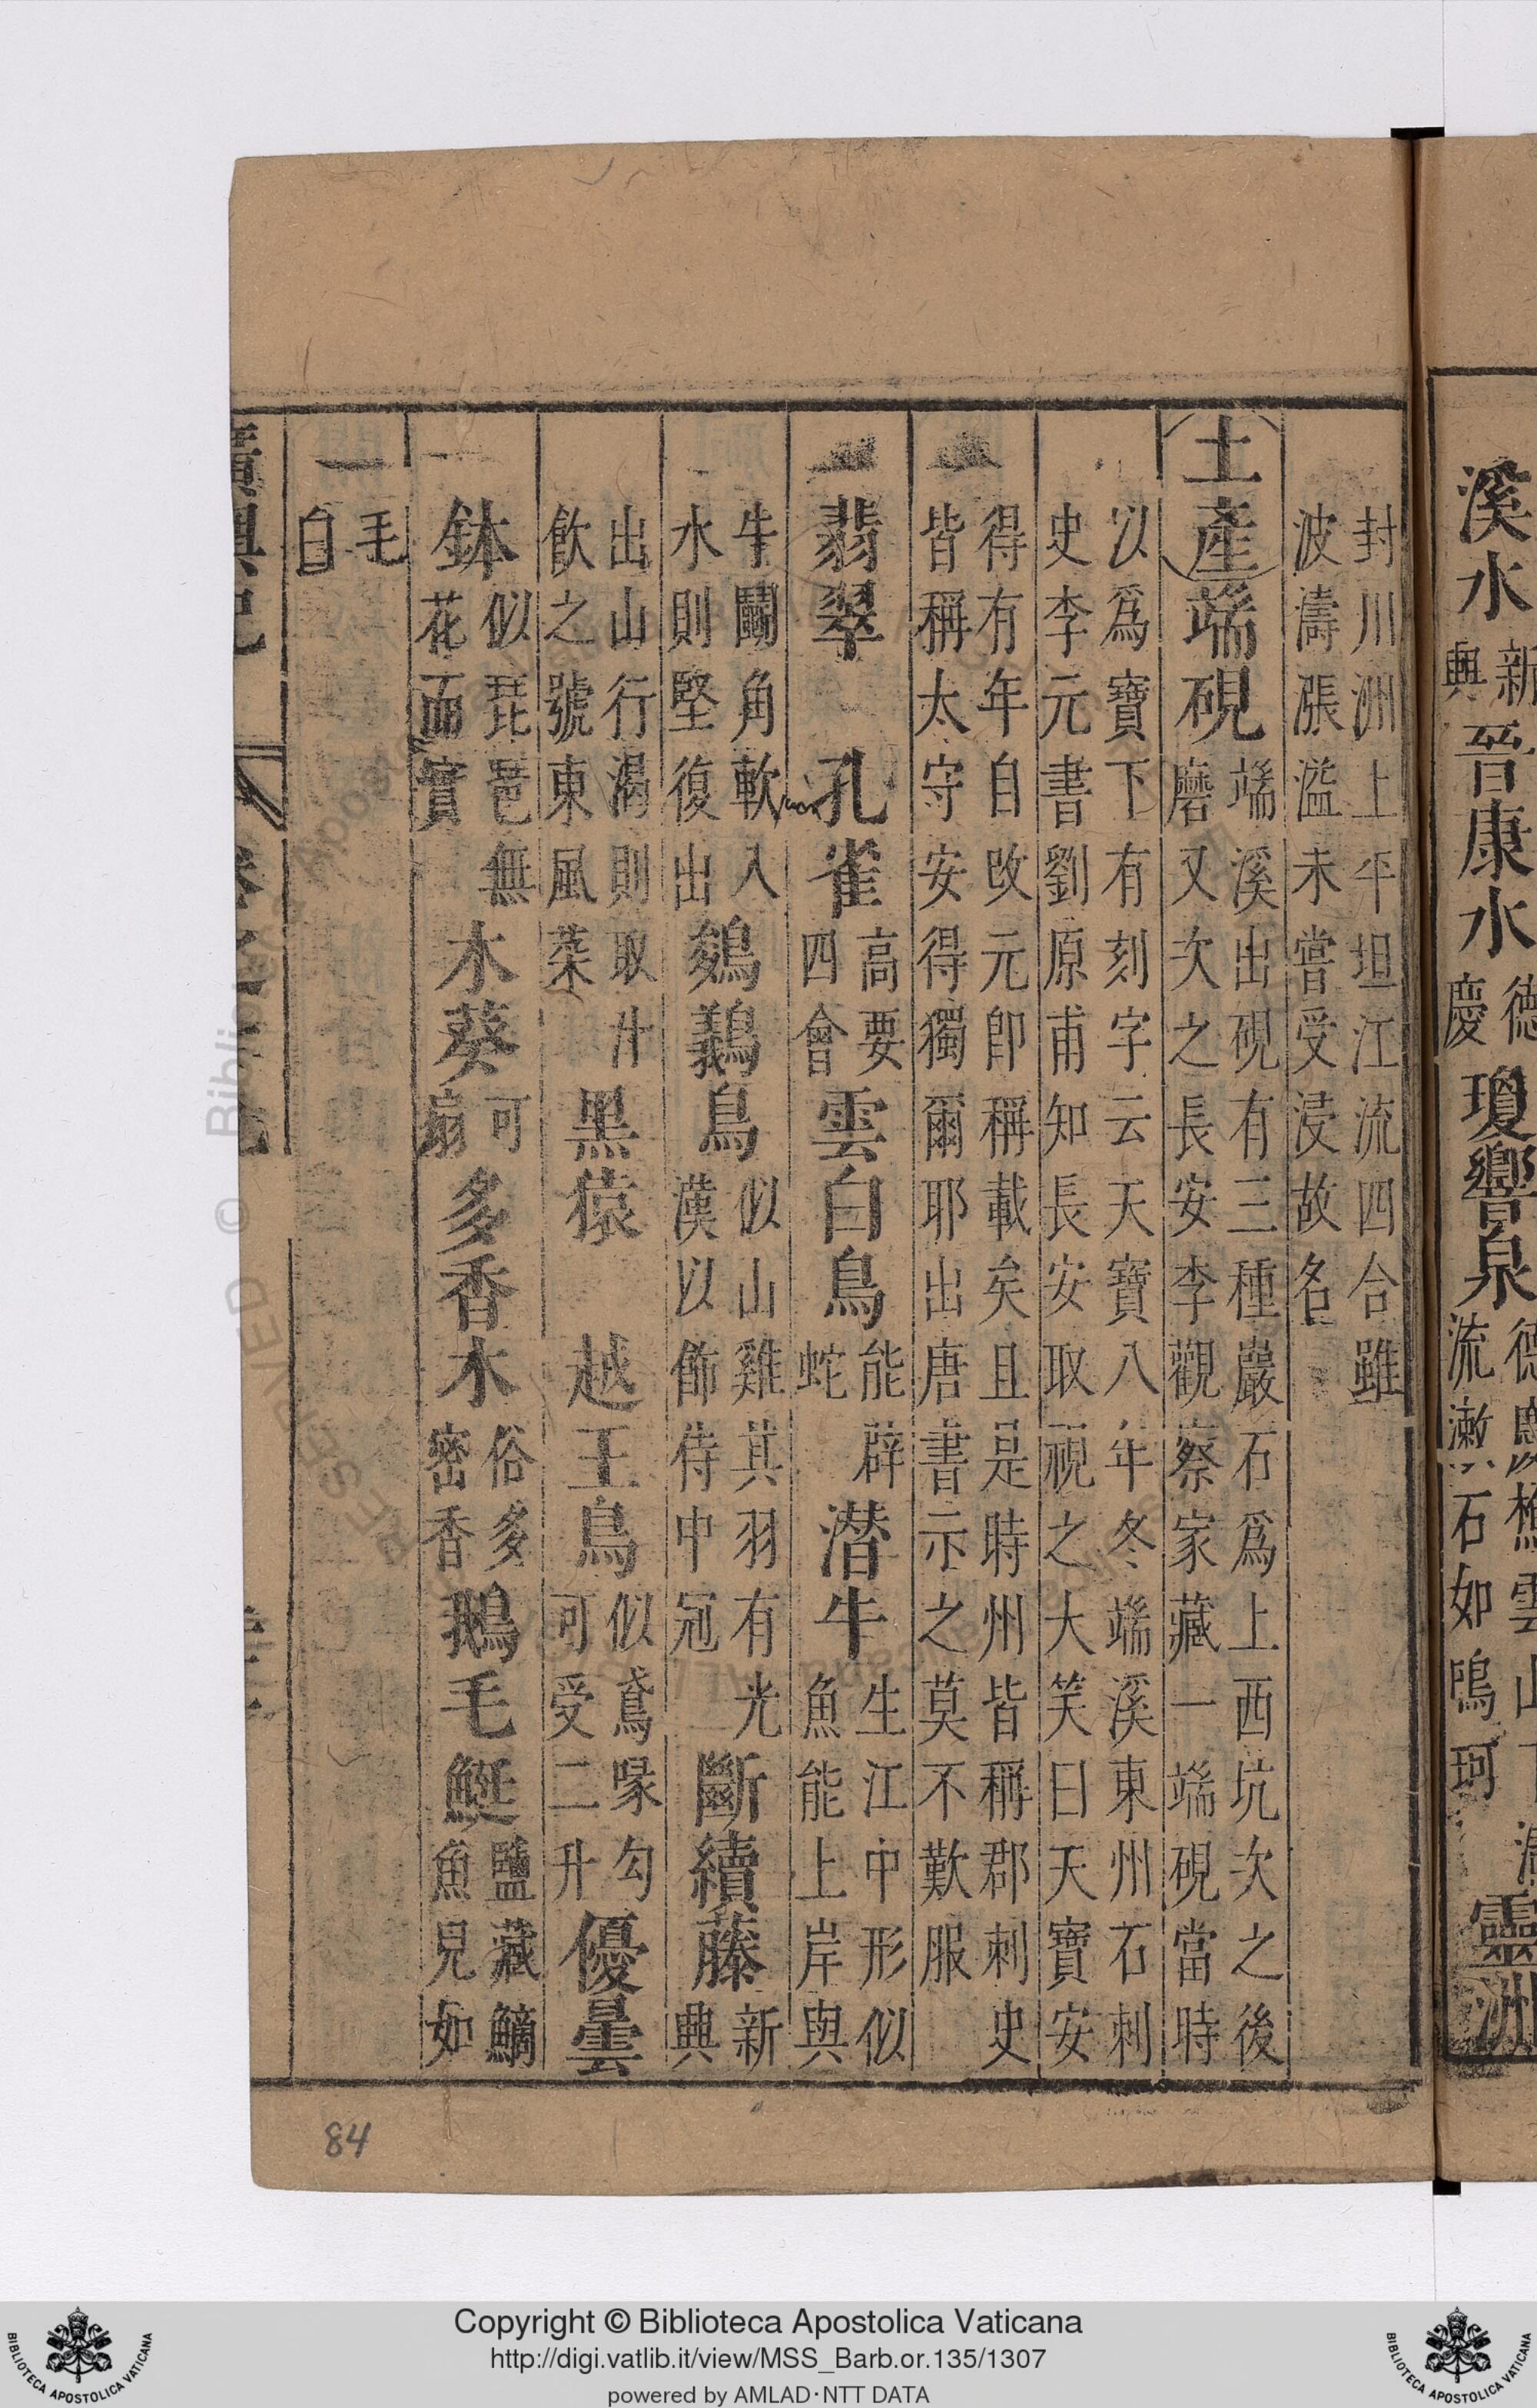 溪水新興晉康水德慶瓊響泉德慶樵雲山下流漱石如鳴珂靈洲
封川洲上平坦江流四合雖
波濤漲溢未嘗受浸故名
土產端硯端溪出硯有三種巖石爲上西坑次之後
磨又次之長安李觀察家藏一端硯當時
以爲寶下有刻字云天寶八年冬端溪東州石刺
史李元書劉原甫知長安取視之大笑曰天寶安
得有年自改元卽稱載矣且是時州皆稱郡刺史
皆稱太守安得獨爾耶出唐書示之莫不歎服
翡翠 孔雀高要四會雲白鳥能辟蛇潜牛生江中形似
魚能上岸與
牛鬭角軟入
水則堅復出鵕鸃鳥似山雞其羽有光漢以飾侍中冠斷續藤新興
出山行渴則取汁
飲之號東風菜黑猿 越王鳥似鳶喙勾可受二升優曇
鉢似琵琶無花而實木葵可扇多香木俗多密香鵝毛鯅鹽藏鱅魚兒如
毛
自
廣輿記
84
Copyright © Biblioteca Apostolica Vaticana
http://digi.vatlib.it/view/MSS_Barb.or.135/1307
powered by AMLAD·NTT DATA
BIBLIOTECA APOSTOLICA VATICANA
BIBLIOTECA APOSTOLICA VATICANA